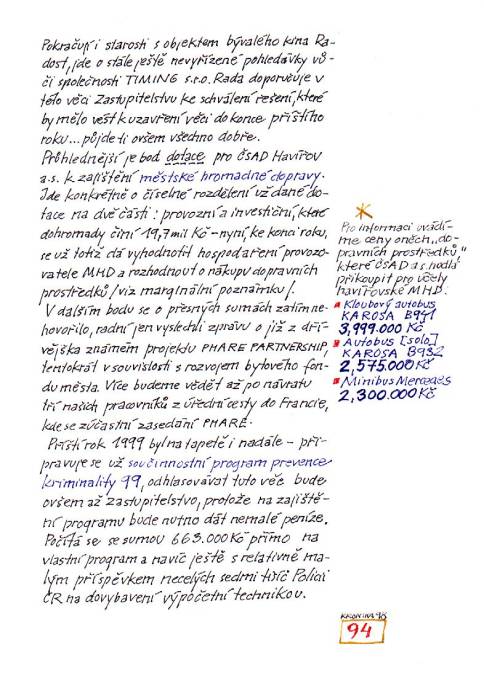 Pokračují i starosti s objektem bývalého kina Ra-
dost, jde o stále ještě nevyřízené pohledávky vů-
či společnosti TIMING s.r.o. Rada doporučuje v
této věci Zastupitelstvu ke schválení řešení, které
by mělo vést k uzavření věci do konce příštího
roku... půjde-ti ovšem všechno dobře.
Průhlednější je bod dotace pro ČSAD Havířov
a.s. k zajištění městské hromadné dopravy.
Jde konkrétně o číselné rozdělení už dané do-
tace na dvě části: provozní a investiční, které
dohromady činí 19,7 mil Kč - nyní, ke konci roku,
se už totiž dá vyhodnotit hospodaření provozo-
vatele MHD a rozhodnout o nákupu dopravních
prostředků /viz marginální poznámku/.
V dalším bodu se o přesných sumách zatím ne-
hovořilo, radní jen vyslechli zprávu o již z dří-
vějška známém projektu PHARE PARTNERSHIP,
tentokrát v souvislosti s rozvojem bytového fon-
du města. Více budeme vědět až po návratu
tří našich pracovníků z úřední cesty do Francie,
kde se zúčastní zasedání PHARE.
Příští rok 1999 byl na tapetě i nadále - při-
pravuje se už součinnostní program prevence
kriminality 99, odhlasovávat tuto věc bude
ovšem až Zastupitelstvo, protože na zajiště-
ní programu bude nutno dát nemalé peníze.
Počítá se se sumou 663.000 Kč přímo na
vlastní program a navíc ještě s relativně ma-
lým příspěvkem necelých sedmi tisíc Policii
ČR na dovybavení výpočetní technikou.
Pro informaci uvádí-
me ceny oněch „do-
pravních prostředků,"
které ČSAD a.s. hodlá
přikoupit pro účely
havířovské MHD:
Kloubový autobus
KAROSA B941
3,999.000 Kč
Autobus [solo]
KAROSA B932
2,575.000 Kč
Minibus Mercedes
2,300.000 Kč
KRONIKA 98
94